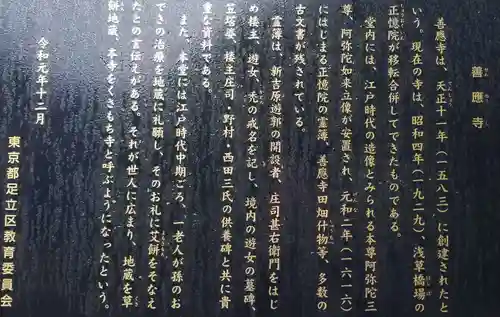 善應寺
善應寺は、天正十一年（一五八三）に創建されたと
いう。現在の寺は、昭和四年（一九二九）、浅草橋場の
正憶院が移転合併してできたものである。
堂内には、江戸時代の造像とみられる本尊阿弥陀三
尊、阿弥陀如来立像が安置され、元和二年（一六一六）
にはじまる正憶院の霊簿、善應寺田畑什物等、多数の
古文書が残されている。
霊簿は、新吉原遊郭の開設者、庄司甚右衛門をはじ
め楼主、遊女、禿の戒名を記し、境内の遊女の墓碑、
笠塔婆、楼主庄司・野村・西田三氏の供養碑と共に貴
重な資料である。
また、本寺には江戸時代中期ごろ、一老人が孫のお
できの治療を地蔵に礼願し、そのお礼に草餅をそなえ
たとの言伝えがある。それが世人に広まり、地蔵を草
餅地蔵、本寺をくさもち寺と呼ぶようになったという。
令和元年十二月
東京都足立区教育委員会